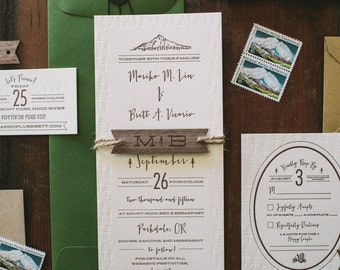 Let's Picnic!
FRIDAY
25
SEPTEMBER
FRONT PARK, HOOD RIVER
TOGETHER WITH THEIR FAMILIES
Mariko M. Lin
&
Brett A. Vicario
M B
September
SATURDAY 26 FOUR O'CLOCK
two thousand and fifteen
AT MOUNT HOOD BED & BREAKFAST
Parkdale, OR
DINNER, DANCING, AND MERRIMENT
to follow!
FOR DETAILS ON ALL
WEEKEND FESTIVITIES,
Kindly Reply By
AUGUST 3
Joyfully Accepts
Regretfully Declines